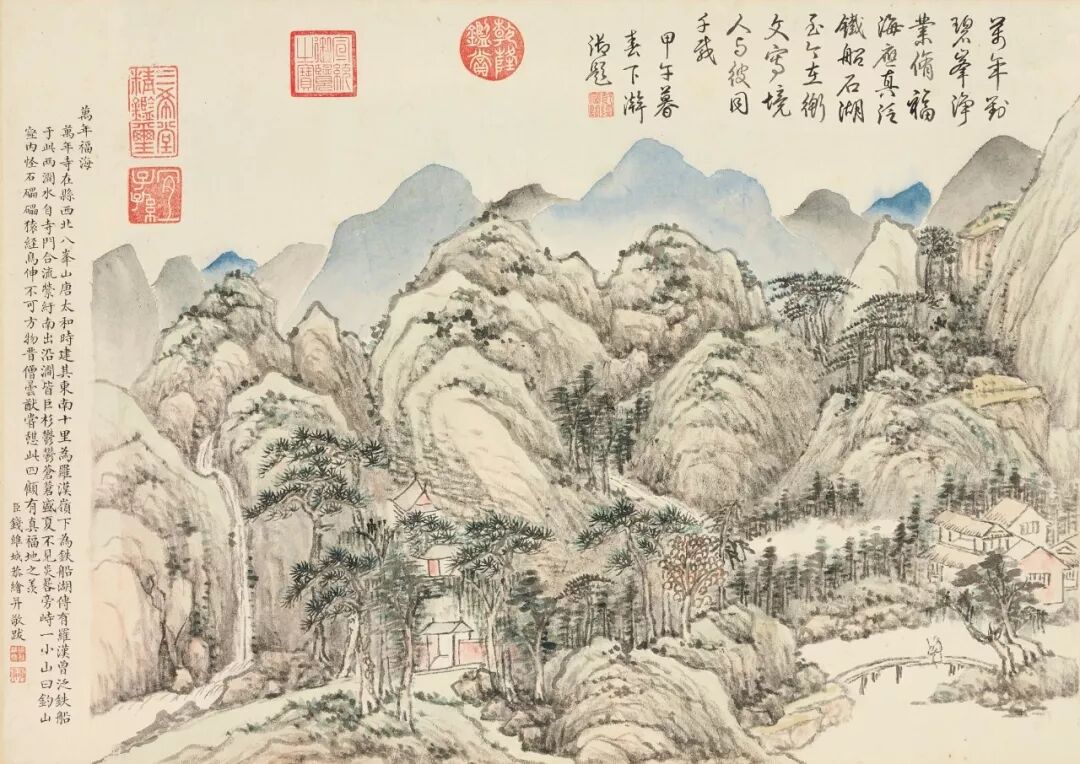 萬年對
碧峯淨
業脩福
海應真泛
鐵船石湖
至今在衡
文寫境
人与彼同
千載
甲午暮
春下澣
御題
乾隆鑑賞
宣統御覽之寶
三希堂精鑑璽
宜子孫
萬年福海
萬年寺在縣西北八峯山唐太和時建其東南十里為羅漢嶺下為鉄船湖傳有羅漢曾泛鉄船
于此两澗水自寺門合流縈紆南出沿澗皆巨杉鬱鬱蒼蒼盛夏不見炎晷旁峙一小山曰釣山
室内怪石猿經鳥伸不可方物昔僧曇猷嘗憩此四顧有真福地之羨
臣錢維城恭繪并敬跋